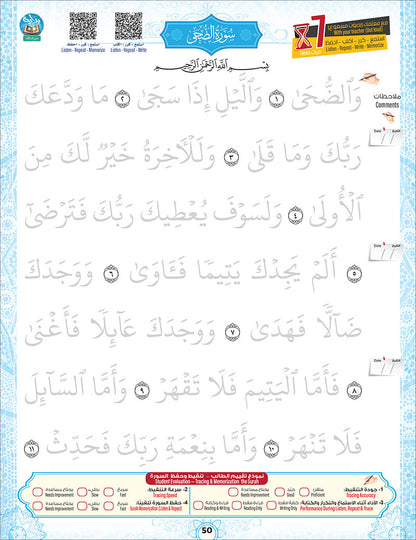 سُورَةُ الضُّحَى
مع معلمك (بصوت مسموع)
With your teacher (Out loud)
استمع - كرر - اكتب - احفظ
Listen - Repeat - Write - Memorize
7
مرات Times
استمع - كرر - اكتب
Listen - Repeat - Write
استمع - كرر - احفظ
Listen - Repeat - Memorize
بِسْمِ اللَّهِ الرَّحْمَٰنِ الرَّحِيمِ
ملاحظات
Comments
وَالضُّحَىٰ ١ وَالَّيْلِ إِذَا سَجَىٰ ٢ مَا وَدَّعَكَ
رَبُّكَ وَمَا قَلَىٰ ٣ وَلَلْآخِرَةُ خَيْرٌ لَّكَ مِنَ
الْأُولَىٰ ٤ وَلَسَوْفَ يُعْطِيكَ رَبُّكَ فَتَرْضَىٰ
٥ أَلَمْ يَجِدْكَ يَتِيمًا فَـَٔاوَىٰ ٦ وَوَجَدَكَ
ضَآلًّا فَهَدَىٰ ٧ وَوَجَدَكَ عَآئِلًا فَأَغْنَىٰ
٨ فَأَمَّا الْيَتِيمَ فَلَا تَقْهَرْ ٩ وَأَمَّا السَّآئِلَ
فَلَا تَنْهَرْ ١٠ وَأَمَّا بِنِعْمَةِ رَبِّكَ فَحَدِّثْ ١١
Date التاريخ
Date التاريخ
Date التاريخ
نموذج تقييم الطالب - تنقيط وحفظ السورة
Student Evaluation – Tracing & Memorization the Surah
1- جودة التنقيط:
Tracing Accuracy
متقن
Proficient
جيد
Good
يحتاج مساعدة
Needs Improvement
2- سرعة التنقيط:
Tracing Speed
سريع
Fast
بطيء
Slow
يحتاج مساعدة
Needs Improvement
3- الأداء أثناء الاستماع والتكرار والكتابة:
Performance During Listen, Repeat & Trace
Writing Only
Reading Only
Reading & Writing
4- حفظ السورة تنقيطًا:
Surah Memorization (Listen & Repeat)
سريع
Fast
بطيء
Slow
يحتاج مساعدة
Needs Improvement
50